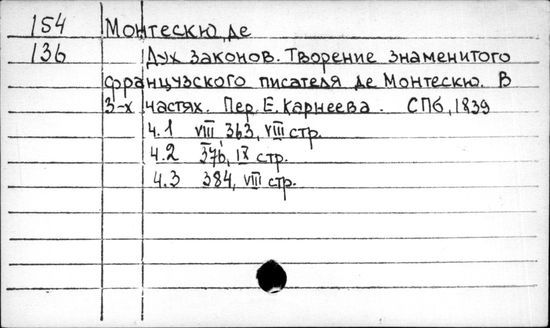 154 Монтескю, де
136 Дух законов. Творение знаменитого
французского писателя де Монтескю. В
3-х частях. Пер. Е. Карнеева. СПб, 1839
Ч.1 VIII, 363, VIII стр.
Ч.2 376, IX стр.
Ч.3 384, VIII стр.